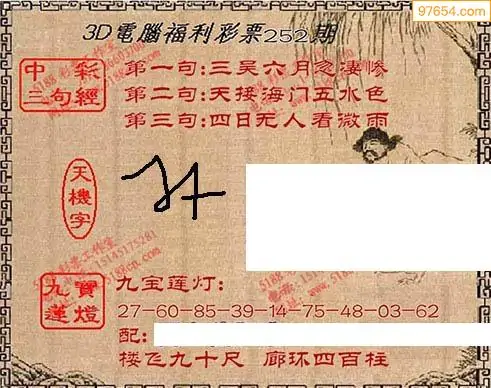 97654.com
3D電腦福利彩票252期
中彩
三句經
第一句:三吴六月忽凄惨
第二句:天接海门五水色
第三句:四日无人看微雨
天機字
九寶
蓮燈
九宝莲灯:
27-60-85-39-14-75-48-03-62
配:
楼飞九十尺 廊环四百柱